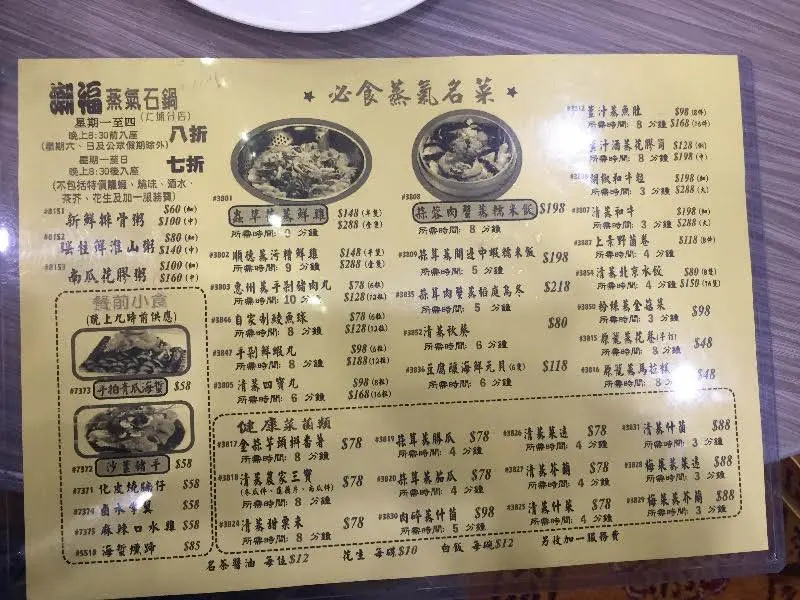 潮福 蒸氣石鍋
(大埔分店)
星期一至四
晚上8:30前入座 八折
(星期六、日及公眾假期除外)
星期一至日
晚上8:30後入座 七折
(不包括特價龍蝦、燒味、酒水、
茶芥、花生及加一服務費)
#8151 新鮮排骨粥 $60(細) $100(中)
#8152 瑤柱鮮淮山粥 $80(細) $140(中)
#8153 南瓜花膠粥 $100(細) $160(中)
餐前小食
(晚上九時前供應)
#7373 手拍青瓜海蜇 $58
#7372 沙薑豬手 $58
#7371 化皮燒腩仔 $58
#7374 鹵水 $58
#7375 麻辣口水雞 $58
#5518 海蜇燻蹄 $85
★ 必食蒸氣名菜 ★
#3801 蟲草 蒸鮮雞 $148(半隻) $288(壹隻)
所需時間: 9 分鐘
#3802 順德蒸污糟鮮雞 $148(半隻) $288(壹隻)
所需時間: 9 分鐘
#3803 惠州蒸手剁豬肉丸 $78(6粒) $128(12粒)
所需時間: 10 分鐘
#3846 自家制鯪魚球 $78(6粒) $128(12粒)
所需時間: 8 分鐘
#3847 手剁鮮蝦丸 $98(6粒) $188(12粒)
所需時間: 8 分鐘
#3805 清蒸四寶丸 $98(8粒) $168(16粒)
所需時間: 6 分鐘
#3808 蒜蓉肉蟹蒸糯米飯 $198
所需時間: 8 分鐘
#3809 蒜茸蒸開邊中蝦糯米飯 $198
所需時間: 5 分鐘
#3835 蒜茸肉蟹蒸稻庭烏冬 $218
所需時間: 5 分鐘
#3852 清蒸秋葵 $80
所需時間: 6 分鐘
#3836 豆腐釀海鮮元貝(6隻) $118
所需時間: 6 分鐘
#3812 薑汁蒸魚肚 $98(8件) $168(16件)
所需時間: 8 分鐘
薑汁酒蒸花膠筒 $128(細) $198(中)
所需時間: 8 分鐘
胡椒和牛粒 $198(細) $288(大)
所需時間: 3 分鐘
#3807 清蒸和牛 $198(細) $288(大)
所需時間: 3 分鐘
#3887 上素野菌卷 $118(8件)
所需時間: 4 分鐘
#3854 清蒸北京水餃 $80(8隻) $150(16隻)
所需時間: 4 分鐘
#3850 粉絲蒸金菇菜 $98
所需時間: 3 分鐘
#3815 原籠蒸花卷(4打) $48
所需時間: 8 分鐘
#3816 原籠蒸馬拉糕 $48
所需時間: 8 分鐘
健康菜菌類
#3817 金蒜芋頭拼番薯 $78
所需時間: 8 分鐘
#3818 清蒸農家三寶 $78
(冬瓜件、蓮藕片、南瓜件)
所需時間: 8 分鐘
#3824 清蒸甜粟米 $78
所需時間: 8 分鐘
#3819 蒜茸蒸勝瓜 $78
所需時間: 4 分鐘
#3820 蒜茸蒸茄瓜 $78
所需時間: 4 分鐘
#3830 肉碎蒸什菌 $98
所需時間: 5 分鐘
#3826 清蒸菜遠 $78
所需時間: 4 分鐘
#3827 清蒸芥蘭 $78
所需時間: 4 分鐘
#3825 清蒸什菜 $78
所需時間: 4 分鐘
#3831 清蒸什菌 $88
所需時間: 3 分鐘
#3828 梅菜蒸菜遠 $88
所需時間: 3 分鐘
#3829 梅菜蒸芥蘭 $88
所需時間: 3 分鐘
名茶醬油 每位$12 花生 每碟$10 白飯 每碗$12 另收加一服務費